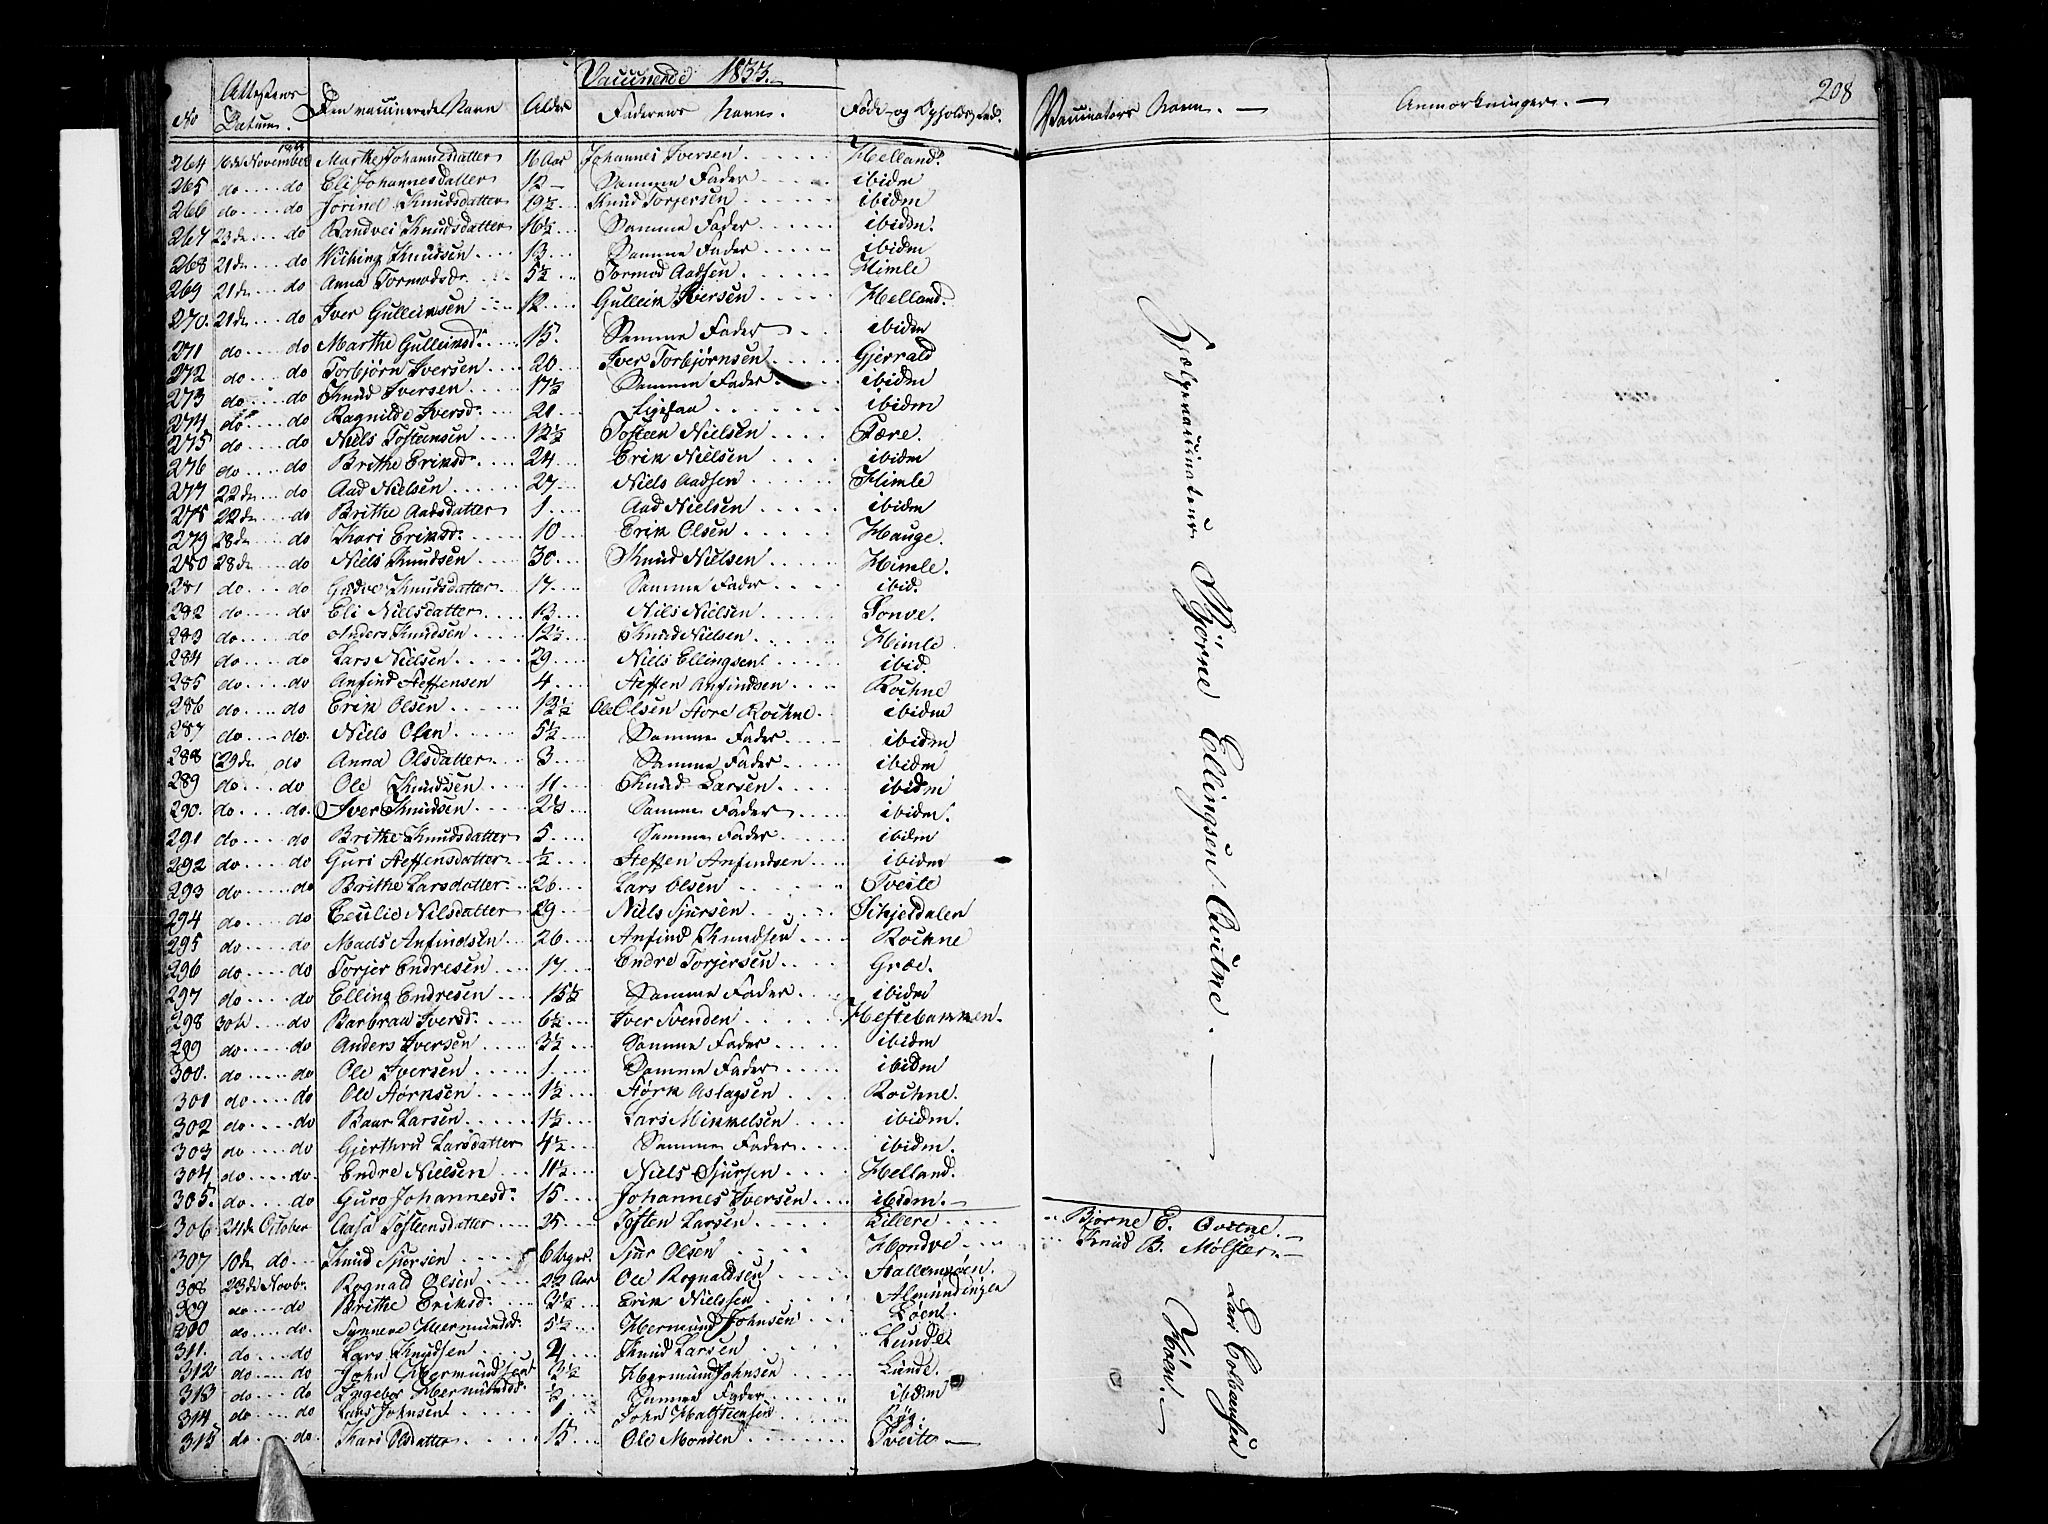 Vaccinerede 1833.
208
No Attestens Datum. Den vaccineredes Navn Alder Faderens Navn. Føde- og Opholdssted. Vaccinators Navn. — Anmærkninger. —
264 16de November Marthe Johannesdatter 16 Aar Johannes Iversen Helland.
265 do do Eli Johannesdatter 12 — Samme Fader ibidm
266 do do Jorinel Knudsdatter 19½ Knud Torjersen ibidm
267 23de do Randvei Knudsdatter 16½ Samme Fader ibidm.
268 21de do Viching Knudsen 13 Samme Fader ibidm
269 21de do Anna Tormodsdr 5½ Tormod Aadsen Himle
270. 21de do Iver Gulleiksen 12 Gulleik Iversen Helland.
271 do do Marthe Gulleiksd: 15. Samme Fader ibidm
272 do do Torbjørn Iversen 20 Iver Torbjørnsen Gjerrald
273 do do Knud Iversen 17½ Samme Fader ibidm
274 do do Ragnilde Iversd: 21 Ligesaa ibidm
275 do do Niels Tosteensen 12½ Tosteen Nielsen Fære.
276 do do Brithe Eriksd: 24 Erik Nielsen ibidm
277 22de do Aad Nielsen 27 Niels Aadsen Himle
278 22de do Brithe Aadsdatter 1 Aad Nielsen ibidm
279 28de do Kari Eriksd: 10 Erik Olsen Hauge.
280 28de do Niels Knudsen 30 Knud Nielsen Himle.
281 do do Gudve Knudsdatter 17 Samme Fader ibid.
282 do do Eli Nielsdatter 13 Niels Nielsen Sonve.
283 do do Anders Knudsen 12½ Knud Nielsen Himle
284 do do Lars Nielsen 29 Niels Ellingsen ibid.
285 do do Anfind Steffensen 4 Steffen Anfindsen Rochne
286 do do Erik Olsen 12½ Ole Olsen Store Rochne. ibidm
287 do do. Niels Olsen 5½ Samme Fader ibidm
288 29de do Anna Olsdatter 3 Samme Fader ibidm
289 do do Ole Knudsen 11 Knud Larsen ibidm
290. do do. Iver Knudsen 2½ Samme Fader ibidm.
291 do do Brithe Knudsdatter 5 Samme Fader ibidm
292 do do Guri Steffensdatter ½ Steffen Anfindsen ibidm
293 do do Brithe Larsdatter 26 Lars Olsen Tveite
294 do do Cecilie Nilsdatter 29 Niels Sjursen Schjeldalen
295 do do Mads Anfindsen 26 Anfind Knudsen Rochne
296 do do Torjer Endresen 17 Endre Torjersen Græe.
297 do do Elling Endresen 15½ Samme Fader ibidm
298 30te do Barbraa Iversd: 6½ Iver Svenden Heftebammen.
299 do do Anders Iversen 3½ Samme Fader ibidm
300. do do Ole Iversen 1 Samme Fader ibidm
301 do do Ole Størksen 1½ Størk Aslagsen Rochne.
302 do do Baar Larsen 1½ Lars Mikkelsen ibidm.
303 do do Gjerthru Larsdatter 4½ Samme Fader ibidm.
304 do do. Endre Nielsen 11½ Niels Sjursen Helland.
305 do do Guro Johannesd: 15 Johannes Iversen ibidm. —
Hjelpevaccinateur Bjørne Ellingsen Qvitne. —
306 24de October Aasa Tosteensdatter 25 Tosten Larsen Lillere Bjørne E. Qvitne. —
307 10de do Knud Sjursen 6 Uger Sjur Olsen Hondve Knud B. Mølster. —
308 23de Novbr. Rognald Olsen 22 Aar Ole Rognaldsen
309 do do Brithe Eriksd: 3½ Erik Nielsen Almindingen
do do. Synneve Hermundsd: 5½ Hermund Johnsen Løen
311. do do Lars Knudsen 4 Knud Larsen Lunde
312 do do John Hermundsen 3½ Hermund Johnsen Lunde.
313 do do Ingebor Hermundsd: ½ Samme Fader ibidm
314 do do Lars Johnsen 1 John
315 do do Kari Olsdatter 15 Ole Monsen Tveite —
Lars